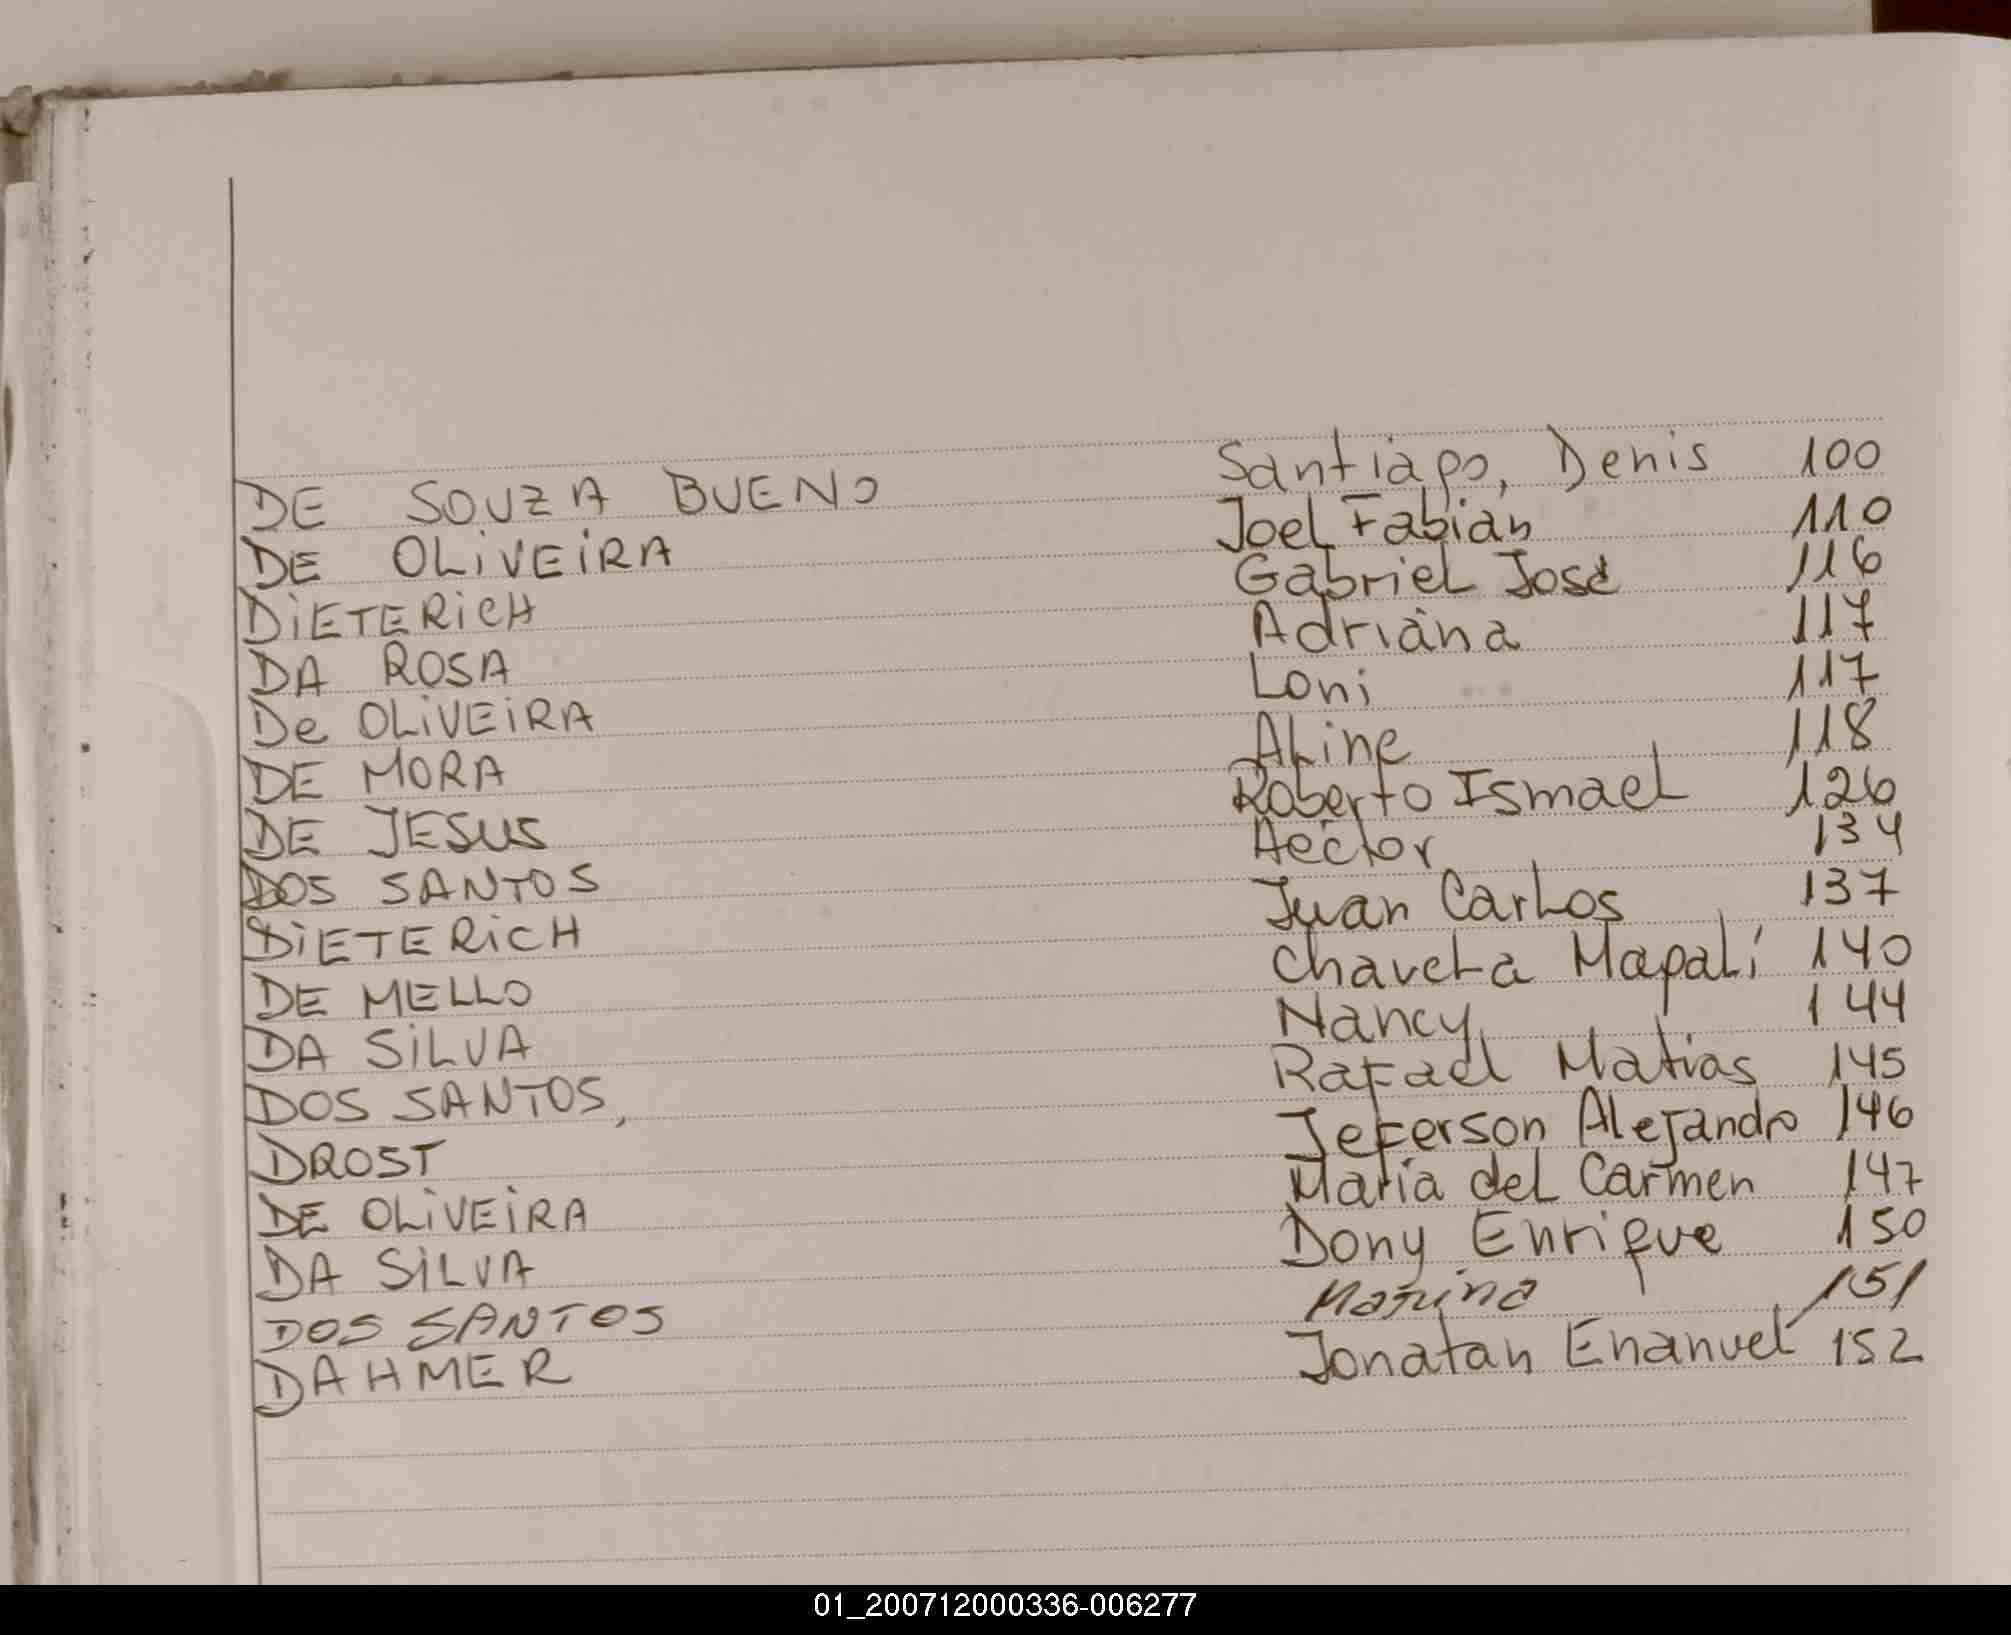 DE SOUZA BUENO Santiago, Denis 100
DE OLIVEIRA Joel Fabian 110
DIETERICH Gabriel José 116
DA ROSA Adriana 117
De OLIVEIRA Loni 117
DE MORA Aline 118
DE JESUS Roberto Ismael 126
DOS SANTOS Aector 134
DIETERICH Juan Carlos 137
DE MELLO Chavela Magalí 140
DA SILVA Nancy 144
DOS SANTOS, Rafael Matias 145
DROST Jeferson Alejandro 146
DE OLIVEIRA Maria del Carmen 147
DA SILVA Dony Enrique 150
DOS SANTOS Marina 151
DAHMER Jonatan Enanuel 152
01_200712000336-006277